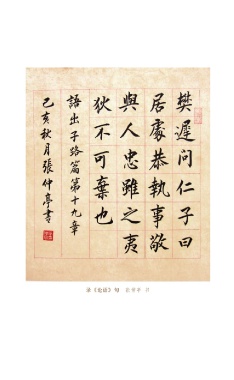 樊遲問仁子曰
居處恭執事敬
與人忠雖之夷
狄不可棄也
語出子路篇第十九章
己亥秋月張仲亭書
录《论语》句